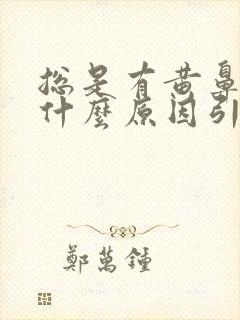 總是有黃鼻
什麼原因引
鄭萬鐘